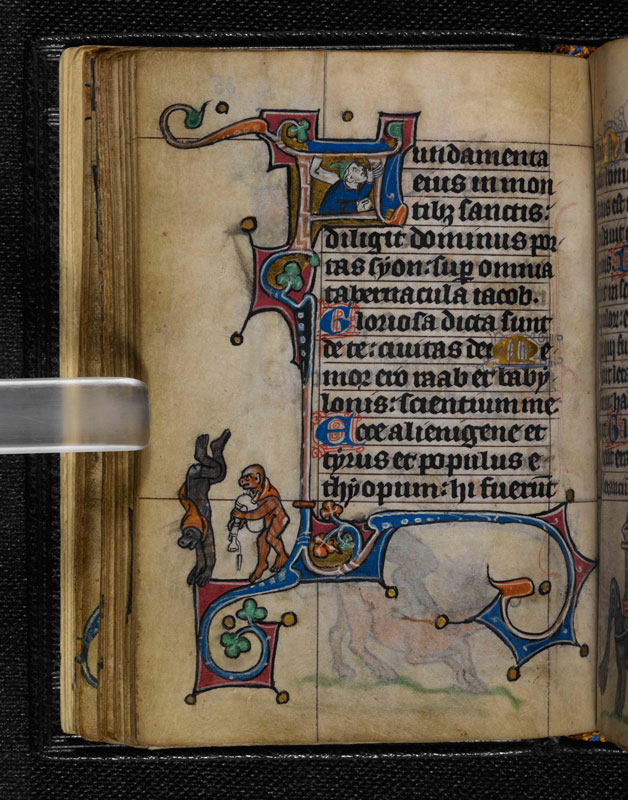 Fundamenta
eius in mon
tibꝫ sanctis:
diligit dominus por
tas syon: sup omnia
tabernacula iacob.
Gloriosa dicta sunt
de te: ciuitas dei Me
mor ero raab et baby
lonis: scientium me.
Ecce alienigene et
tyrus et populus e
thyopum: hi fuerūt